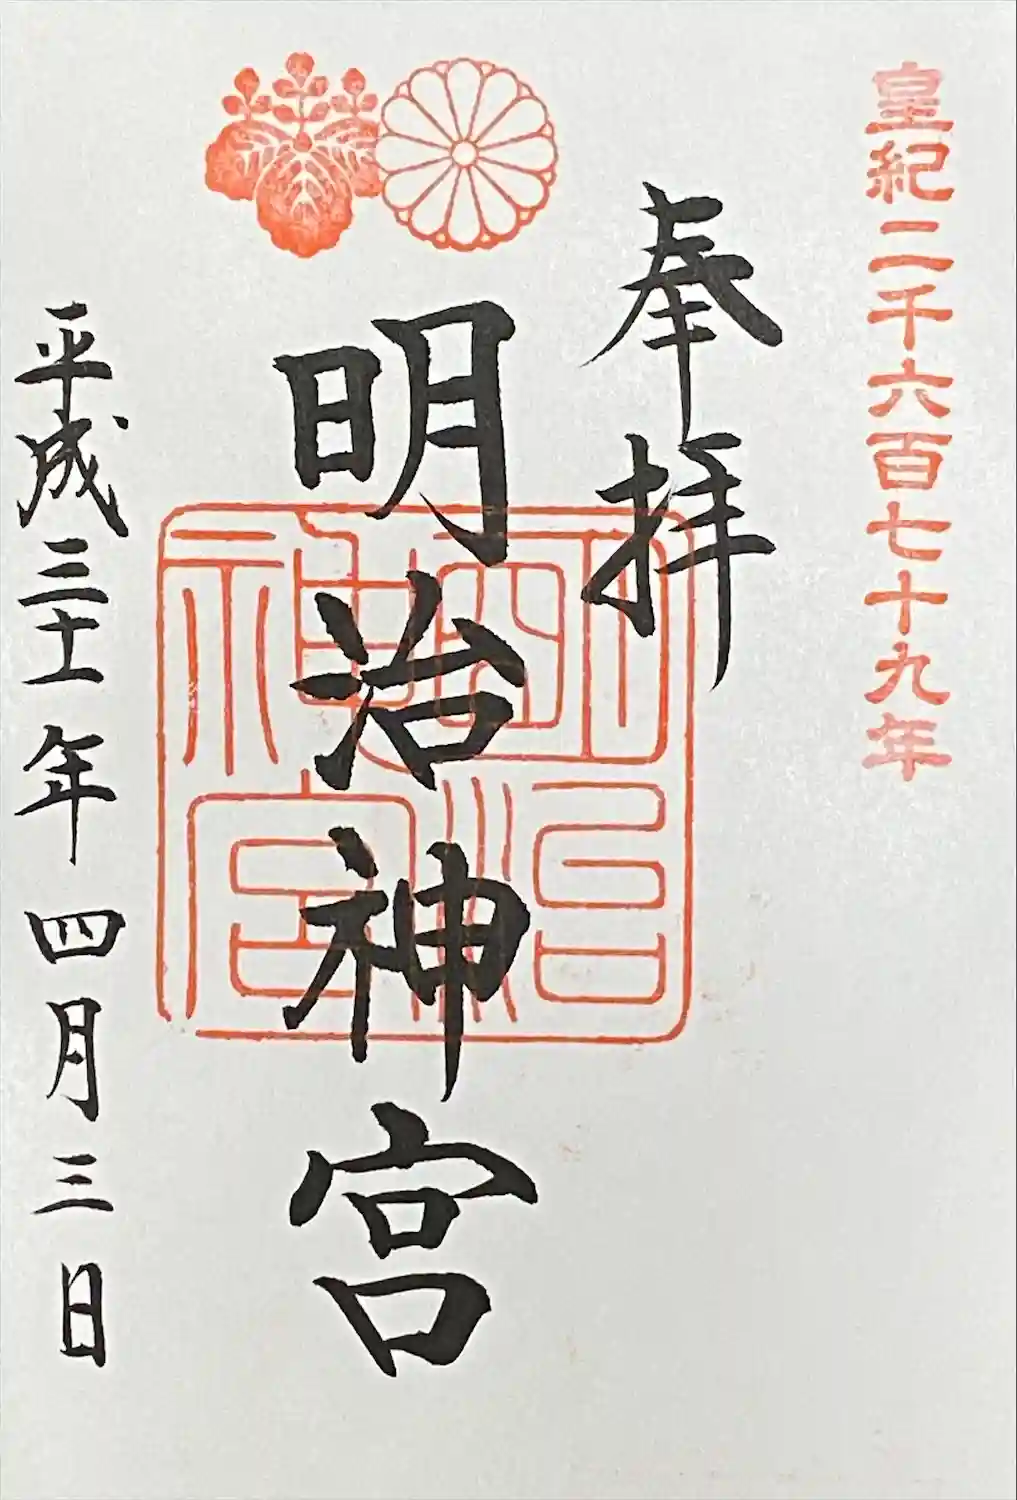 皇紀二千六百七十九年
奉拝
明治神宮
明治神宮
平成三十一年四月三日